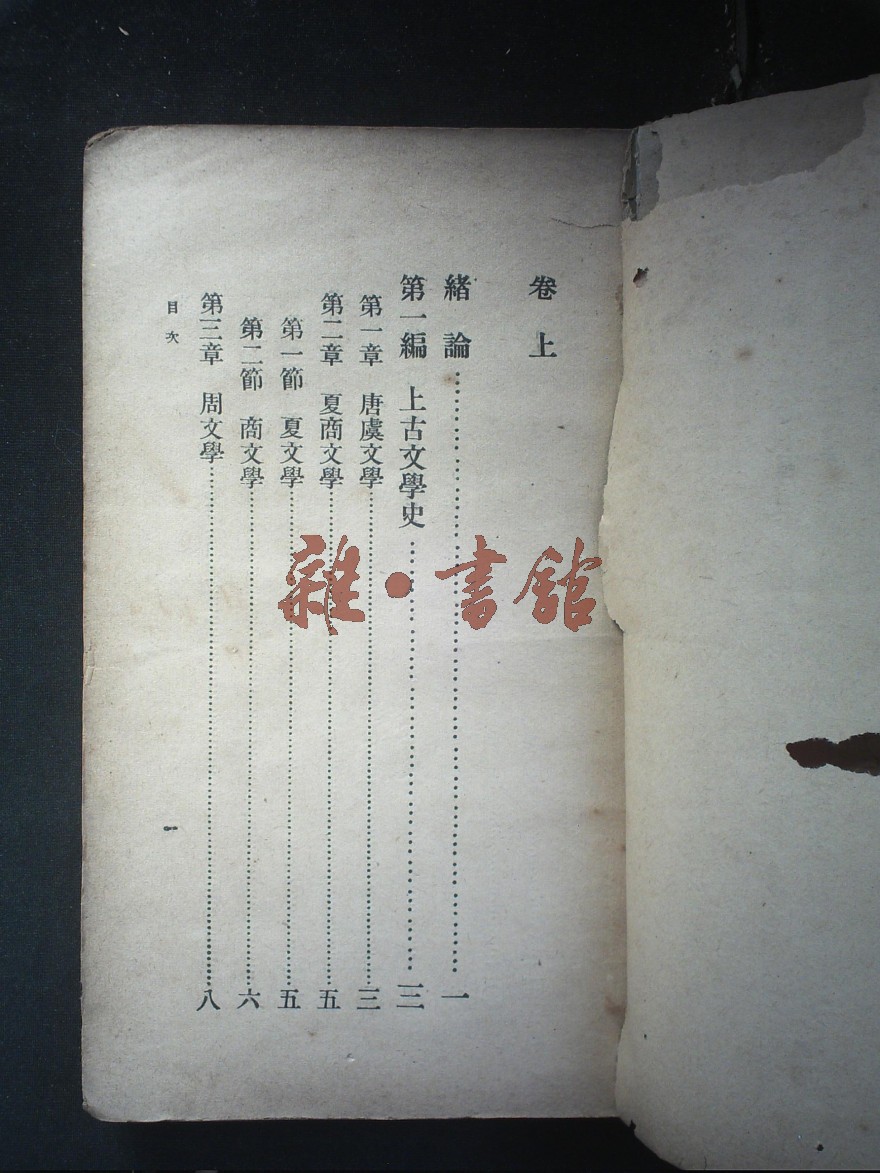 卷上
緒論……一
第一編　上古文學史……三
第一章　唐虞文學……三
第二章　夏商文學……五
第一節　夏文學……五
第二節　商文學……六
第三章　周文學……八
目次　一
雜·書館